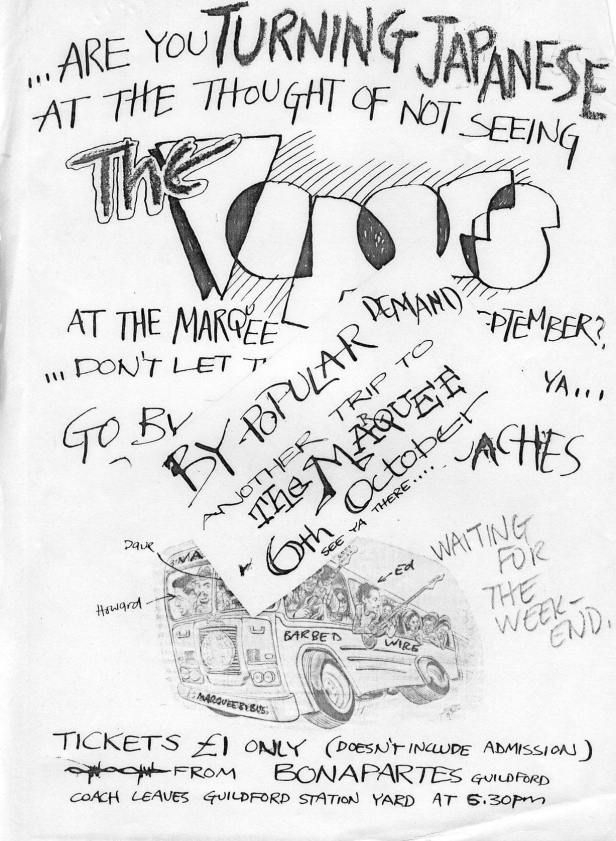 ...ARE YOU TURNING JAPANESE
AT THE THOUGHT OF NOT SEEING
The VAPORS
AT THE MARQUEE
PTEMBER?
... DON'T LET T
YA...
GO BY
ACHES
BY POPULAR DEMAND
ANOTHER TRIP TO
The MARQUEE
6th October
SEE YA THERE....
Dave
Howard
Ed
WAITING
FOR
THE
WEEK-
END.
BARBED WIRE
MARQUEE BY BUS
TICKETS £1 ONLY (DOESN'T INCLUDE ADMISSION)
FROM BONAPARTES GUILDFORD
COACH LEAVES GUILDFORD STATION YARD AT 5.30pm